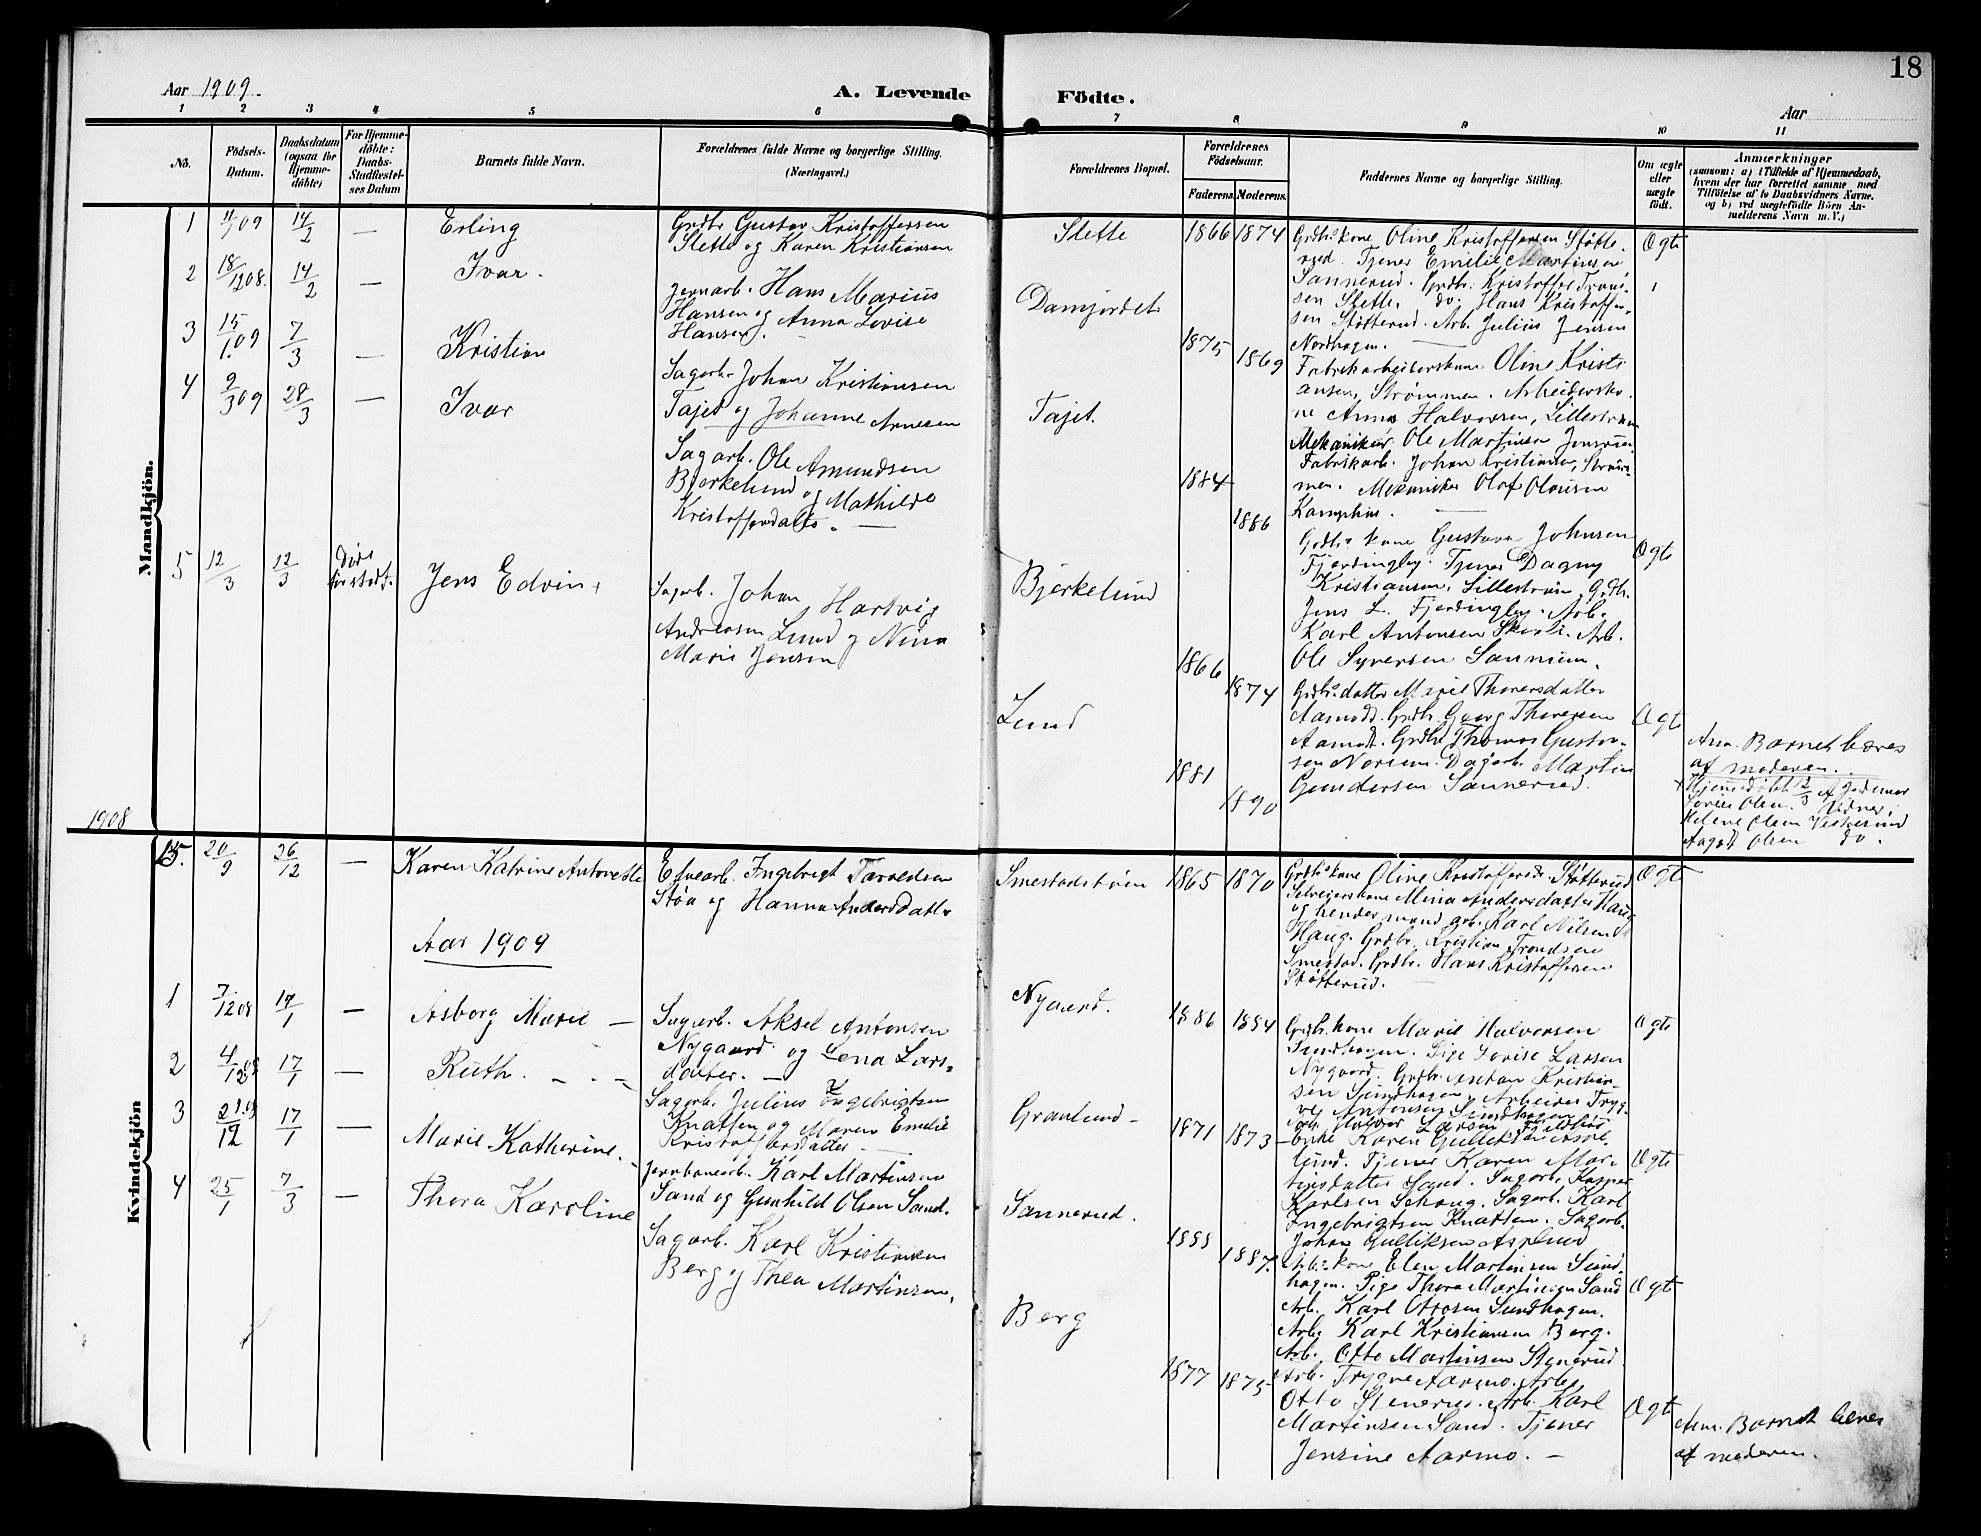 18
Aar 1909.
A. Levende Födte.
Aar
1 2 3 4 5 6 7 8 9 10 11
Nö.
Födsels-
Datum.
Daabsdatum
(ogsaa for
Hjemme-
döbte)
For Hjemme-
döbte:
Daabs-
Stadfæstel-
ses Datum
Barnets fulde Navn.
Forældrenes fulde Navne og borgerlige Stilling.
(Næringsvei.)
Forældrenes Bopæl.
Forældrenes
Födselsaar.
Faderens. Moderens.
Faddernes Navne og borgerlige Stilling.
Om ægte
eller
uægte
födt.
Anmærkninger
(saasom: a) i Tilfælde af Hjemmedaab,
hvem der har forrettet samme med
Tilföielse af to Daabsvidners Navne.
og b) ved uægtefödte Börn An-
melderens Navn m. V.)
Mandkjön.
1 09 14/2 — Erling
Grdbr. Gustav Kristoffersen
Slette og Karen Kristiansen
Slette 1866 1874
Grdbr.kone Oline Kristoffersen Støtte-
rud. Tjener Emilie Martinsen
Sannerud. Grdbr. Kristoffer Trond-
sen Slette. do. Hans Kristoffer-
sen Støtterud. Arb. Julius Jensen
Nordhagen.
Ægte
2 18/12 08. 14/2 — Ivar.
Jernarb. Hans Marius
Hansen og Anna Lovise
Hansen.
Damjordet
1875 1869
Fabrikarbeiderskone Oline Kristi
ansen, Strømmen. Arbeidersko-
ne Anna Halvorsen, Lillestrøm
Mekaniker Ole Martinsen
Fabrikarb. Johan Kristiansen, Strøm-
men. Mekaniker Olaf Olausen
3 15/1. 09 7/3 — Kristian
Sagarb. Johan Kristiansen
Tajet og Johanne Arnesen
Tajet.
1884 1886
Grdbr. kone Gustava Johnsen
Fjerdingby. Tjener Dagny
Kristiansen, Lillestrøm. Grdb.
Jens L. Fjerdingby. Arb.
Karl Antonsen Arb.
Ole Syversen
Ægte
4 2/3 09 28/3 — Ivar
Sagarb. Ole Amundsen
Bjerkelund og Mathilde
Kristoffersdatter. —
Bjerkelund
1866 1874
Grdbr.datter Marie Thoresdatter
Aamodt. Grdbr. Georg Thoresen
Aamodt. Grdbr. Thomas Gustav-
sen Nordm. Dagarb. Martin
Gundersen Sannerud.
Ægte
Anm. Barnet bæres
af moderen.
5 12/3 12/3 Død
før stadf.
Jens Edvin +
Sagarb. Johan Hartvig
Andreasen Lund og Nina
Marie Jensen
Lund
1881 1890
+ Hjemmedøbt 12/3 af Jordemor
Lovise Olsen. Vidner:
Helene Olsen
August Olsen do.
Kvindekjön
1908
15. 20/9 26/12 — Karen Katrine Antonette
Ingebrigt
Støa og Hanna Andersdatter
Smestadstøen 1865 1870
Grdbr.kone Oline Kristoffersd. Støtterud
Selveierskone Mina Andersdatter Haug
og hendes mand arb. Karl Nilsen
Haug. Grdbr. Kristian Trondsen
Smestad. Grdbr. Hans Kristoffersen
Støtterud.
Ægt
Aar 1909
1 7/12 08 17/1 — Asborg Marie —
Sagarb. Aksel Antonsen
Nygaard. og Lena Lars-
datter. —
Nygaard.
1886 1884
Grdbr. kone Marie Halvorsen
Sundhagen. Pige Lovise Larsen
Nygaard. Grdbr. Anton Kristian-
sen Sundhagen. Arbeider Tryg-
ve Antonsen Sundhagen
Halvor Larsen
Ægte
2 4/12 08 17/1 — Ruth. — . —
Sagarb. Julius Ingebrigtsen
Knatten og Maren Emelie
Kristoffersdatter —
Granlund —
1871 1873
Enke Karen Gulliksen Aspe-
lund. Tjener Karen Mar-
tinsdatter Sand. Sagarb. Kasper
Karlsen Schaug. Sagarb. Karl
Ingebrigtsen Knatten. Sagarb.
Johan Gulliksen Asplund
Ægte
3 2/12 17/1 — Marie Katherine.
Jernbanearb. Karl Martinsen
Sand og Gunhild Olsen Sand.
Sannerud.
1888 1887.
Arb. kone Elen Martinsen Sund-
hagen. Pige Thora Martinsen Sand
Arb. Karl Ottosen Sundhagen.
Arb. Karl Kristiansen Berg.
Arb. Otto Martinsen Stenerud
Ægte
4 25/1 7/3 — Thora Karoline
Sagarb. Karl Kristiansen
Berg og Thea Martinsen.
Berg
1877 1875
Arb. Trygve Aarmo. Arb.
Otto Stenerud. Arb. Karl
Martinsen Sand. Tjener
Jensine Aarmo. —
Ægt
Anm. Barnet bæres
af moderen.